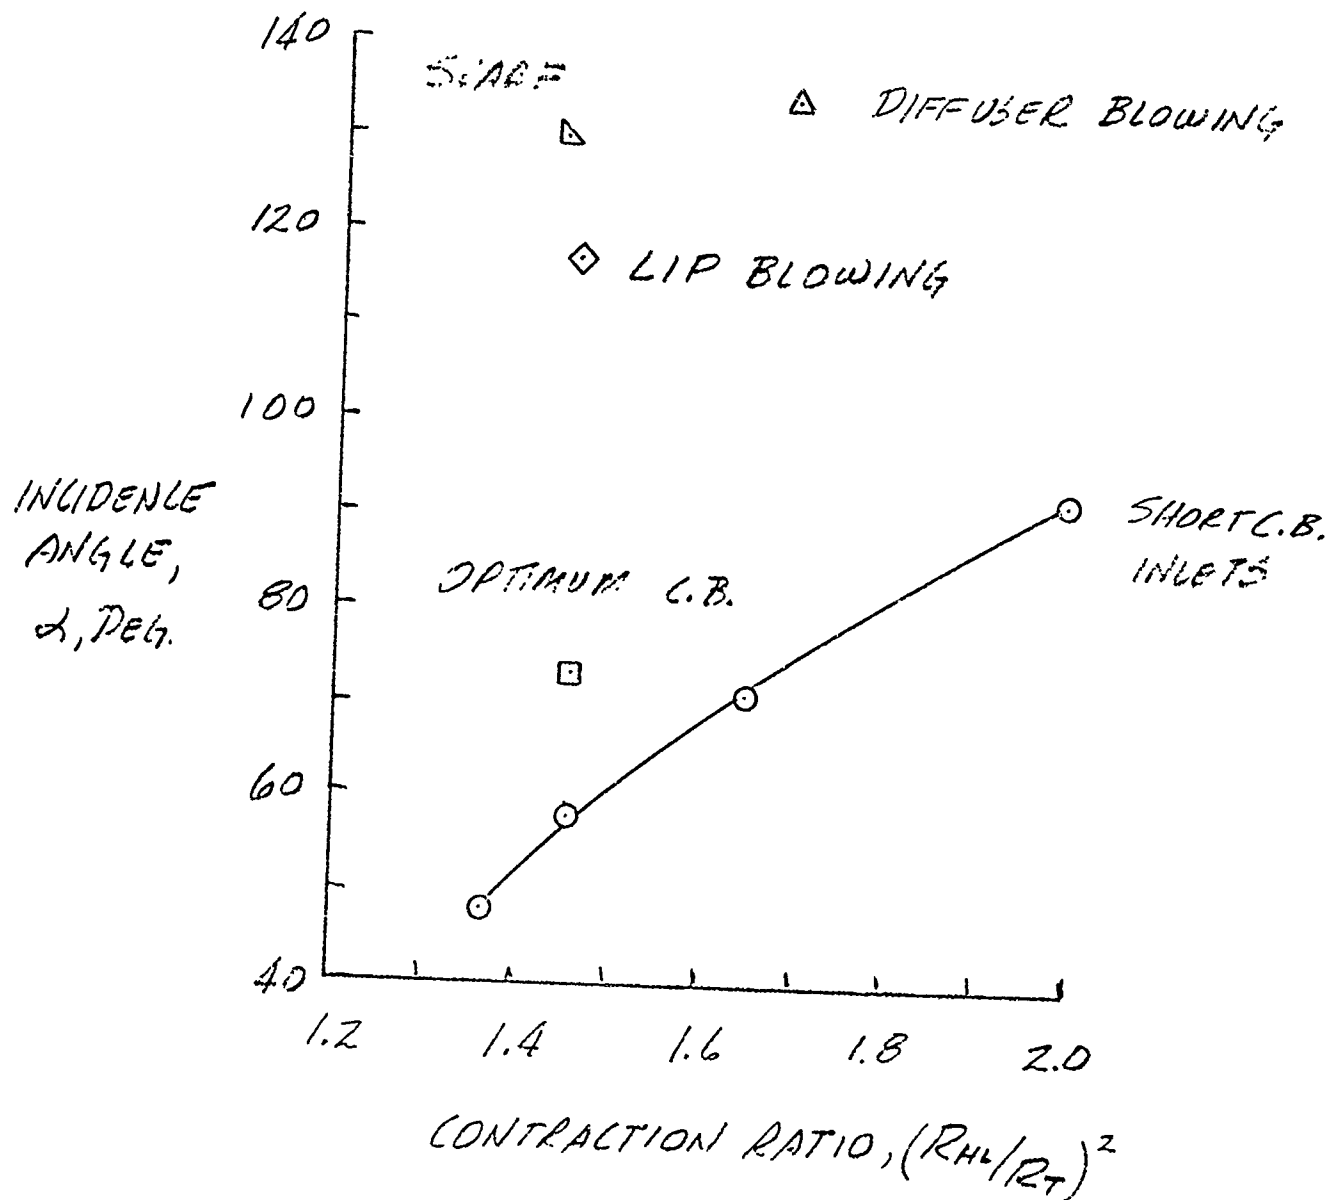 140
SCARF
DIFFUSER BLOWING
120
LIP BLOWING
100
INCIDENCE
ANGLE,
α, DEG.
SHORT C.B.
INLETS
80
OPTIMUM C.B.
60
40
1.2 1.4 1.6 1.8 2.0
CONTRACTION RATIO, (RHL/RT)²